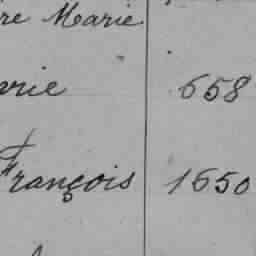 re Marie
rie 658
François 1650